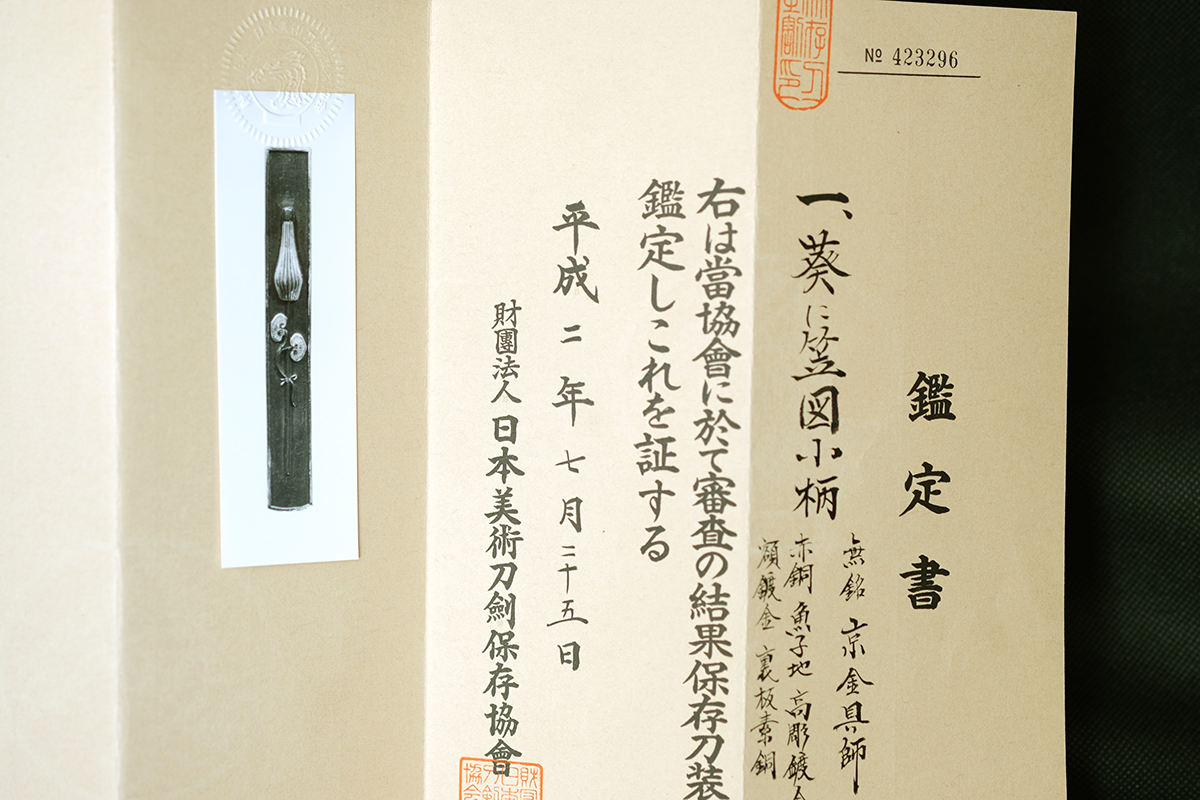 № 423296
鑑定書
一、葵に笠図小柄
無銘 京金具師
赤銅 魚子地 高彫 鍍金
額鍍金 裏板素銅
右は當協會に於て審査の結果保存刀装
鑑定しこれを証する
平成二年七月二十五日
財團法人 日本美術刀劍保存協會